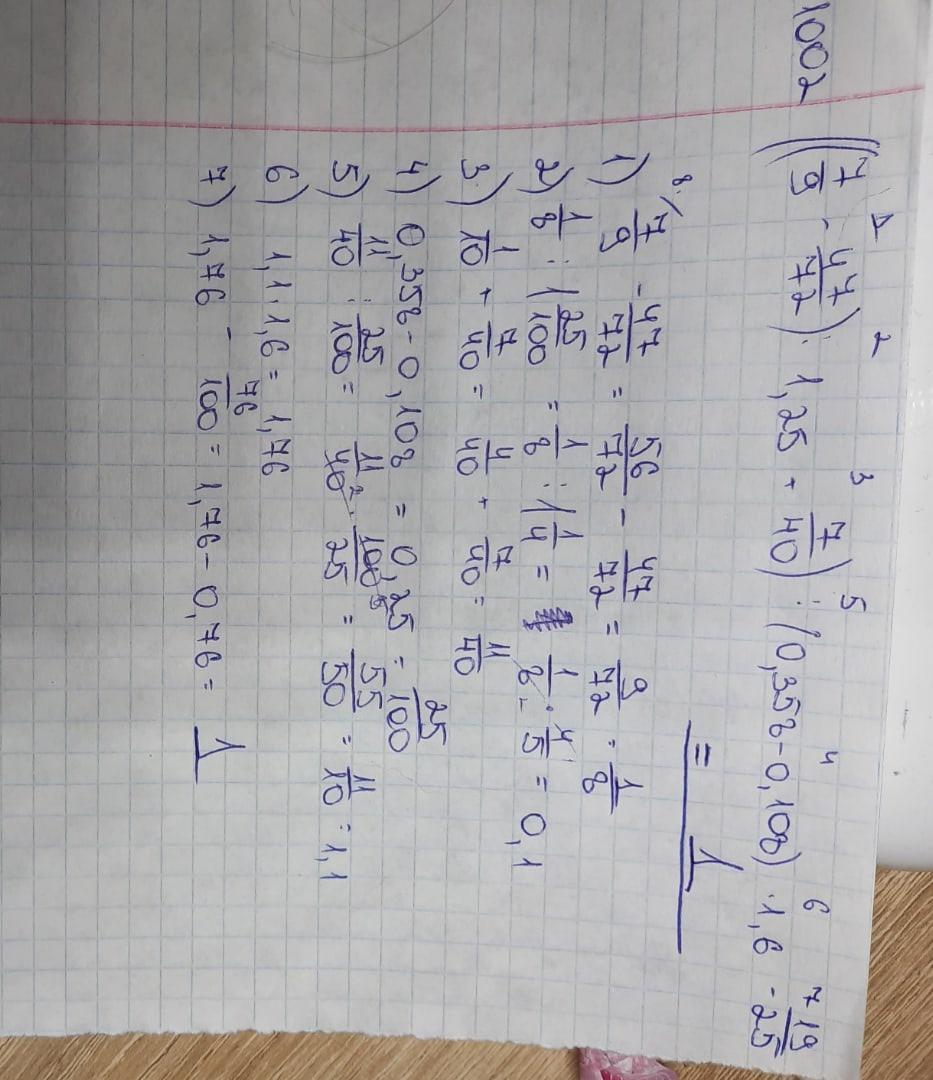 1002 ((7/9 - 47/72) : 1,25 + 7/40) : (0,358 - 0,108) · 1,6 - 19/25
1 2 3 5 4 6 7
= 1
1) 8·/7/9 - 47/72 = 56/72 - 47/72 = 9/72 = 1/8
2) 1/8 : 1 25/100 = 1/8 : 1 1/4 = 1/8 · 4/5 = 0,1
3) 1/10 + 7/40 = 4/40 + 7/40 = 11/40
4) 0,358 - 0,108 = 0,25 = 25/100
5) 11/40 : 25/100 = 11/40 · 100/25 = 55/50 = 11/10 = 1,1
6) 1,1 · 1,6 = 1,76
7) 1,76 - 76/100 = 1,76 - 0,76 = 1